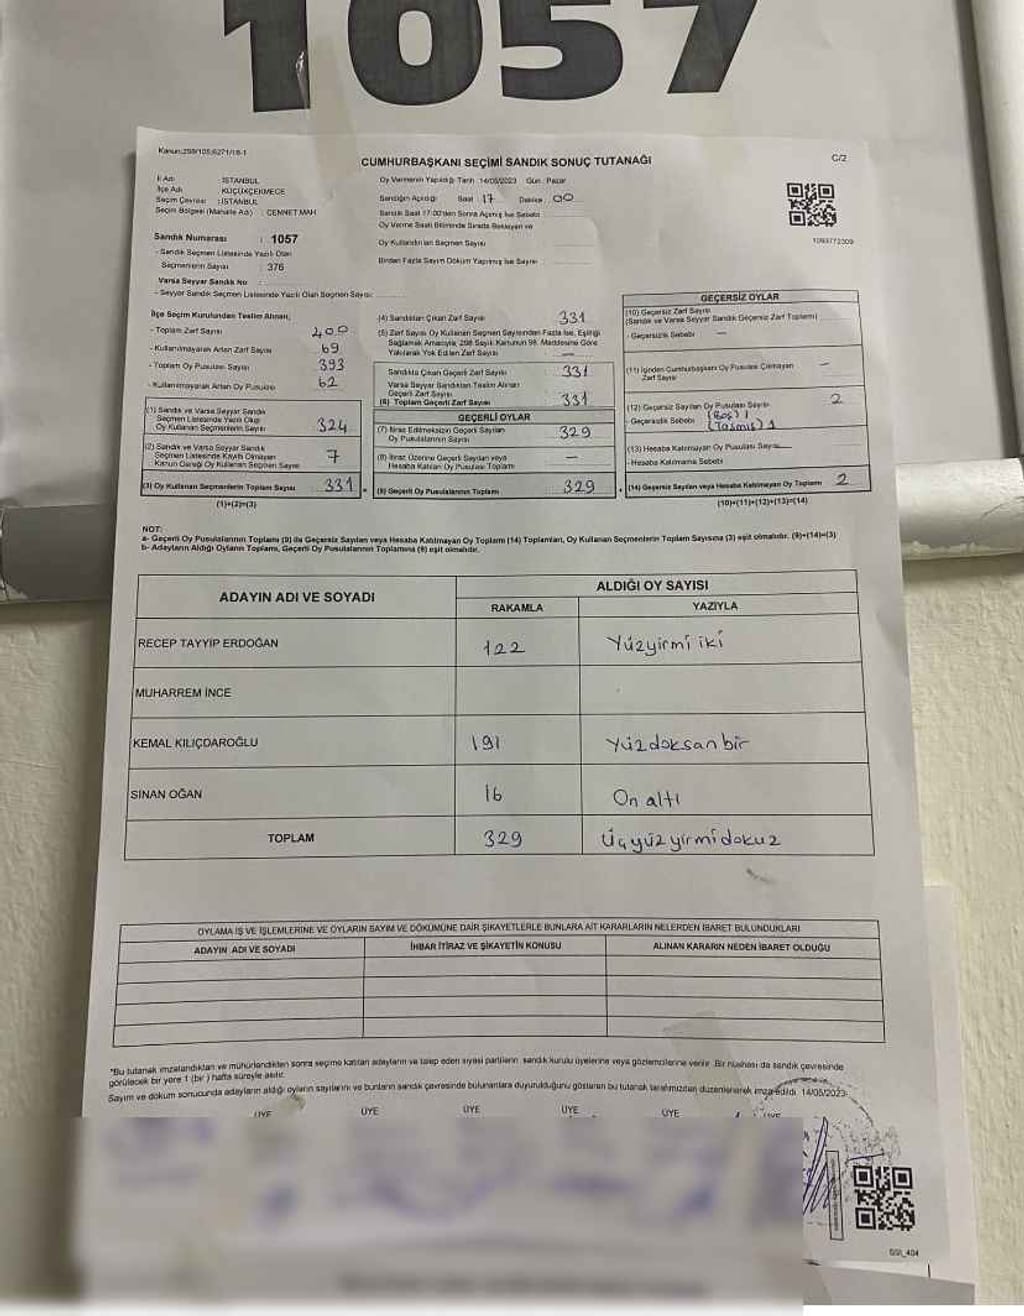 1057
Kanun:298/105;6271/18-1
CUMHURBAŞKANI SEÇİMİ SANDIK SONUÇ TUTANAĞI
C/2
İl Adı : İSTANBUL
İlçe Adı : KÜÇÜKÇEKMECE
Seçim Çevresi : İSTANBUL
Seçim Bölgesi (Mahalle Adı) : CENNET MAH
Oy Vermenin Yapıldığı Tarih :14/05/2023 Gün : Pazar
Sandığın Açıldığı Saat 17 Dakika 00
Sandık Saat 17:00'den Sonra Açılmış İse Sebebi
Oy Verme Saati Bitiminde Sırada Bekleyen ve
Oy Kullandırılan Seçmen Sayısı
Birden Fazla Sayım Döküm Yapılmış İse Sayısı
1093772309
Sandık Numarası : 1057
- Sandık Seçmen Listesinde Yazılı Olan
Seçmenlerin Sayısı : 376
Varsa Seyyar Sandık No :
- Seyyar Sandık Seçmen Listesinde Yazılı Olan Seçmen Sayısı:
İlçe Seçim Kurulundan Teslim Alınan;
- Toplam Zarf Sayısı 400
- Kullanılmayarak Artan Zarf Sayısı 69
- Toplam Oy Pusulası Sayısı 393
- Kullanılmayarak Artan Oy Pusulası 62
(1) Sandık ve Varsa Seyyar Sandık
Seçmen Listesinde Yazılı Olup
Oy Kullanan Seçmenlerin Sayısı 324
(2) Sandık ve Varsa Seyyar Sandık
Seçmen Listesinde Kayıtlı Olmayan
Kanun Gereği Oy Kullanan Seçmen Sayısı 7
(3) Oy Kullanan Seçmenlerin Toplam Sayısı 331
(1)+(2)=(3)
(4) Sandıktan Çıkan Zarf Sayısı 331
(5) Zarf Sayısı Oy Kullanan Seçmen Sayısından Fazla İse, Eşitliği
Sağlamak Amacıyla, 298 Sayılı Kanunun 98. Maddesine Göre
Yakılarak Yok Edilen Zarf Sayısı —
Sandıkta Çıkan Geçerli Zarf Sayısı 331
Varsa Seyyar Sandıktan Teslim Alınan
Geçerli Zarf Sayısı
(6) Toplam Geçerli Zarf Sayısı 331
GEÇERLİ OYLAR
(7) İtiraz Edilmeksizin Geçerli Sayılan
Oy Pusulalarının Sayısı 329
(8) İtiraz Üzerine Geçerli Sayılan veya
Hesaba Katılan Oy Pusulası Toplamı —
(9) Geçerli Oy Pusulalarının Toplamı 329
GEÇERSİZ OYLAR
(10) Geçersiz Zarf Sayısı
(Sandık ve Varsa Seyyar Sandık Geçersiz Zarf Toplamı)
- Geçersizlik Sebebi —
(11) İçinden Cumhurbaşkanı Oy Pusulası Çıkmayan
Zarf Sayısı —
(12) Geçersiz Sayılan Oy Pusulası Sayısı 2
Geçersizlik Sebebi (Boş) 1
(Taşmış) 1
(13) Hesaba Katılmayan Oy Pusulası Sayısı —
- Hesaba Katılmama Sebebi
(14) Geçersiz Sayılan veya Hesaba Katılmayan Oy Toplamı 2
(10)+(11)+(12)+(13)=(14)
NOT:
a- Geçerli Oy Pusulalarının Toplamı (9) ile Geçersiz Sayılan veya Hesaba Katılmayan Oy Toplamı (14) Toplamları, Oy Kullanan Seçmenlerin Toplam Sayısına (3) eşit olmalıdır. (9)+(14)=(3)
b- Adayların Aldığı Oyların Toplamı, Geçerli Oy Pusulalarının Toplamına (9) eşit olmalıdır.
ADAYIN ADI VE SOYADI
ALDIĞI OY SAYISI
RAKAMLA YAZIYLA
RECEP TAYYİP ERDOĞAN 122 Yüzyirmi iki
MUHARREM İNCE
KEMAL KILIÇDAROĞLU 191 Yüzdoksan bir
SİNAN OĞAN 16 On altı
TOPLAM 329 Üçyüz yirmi dokuz
OYLAMA İŞ VE İŞLEMLERİNE VE OYLARIN SAYIM VE DÖKÜMÜNE DAİR ŞİKAYETLERLE BUNLARA AİT KARARLARIN NELERDEN İBARET BULUNDUKLARI
ADAYIN ADI VE SOYADI İHBAR İTİRAZ VE ŞİKAYETİN KONUSU ALINAN KARARIN NEDEN İBARET OLDUĞU
"Bu tutanak imzalandıktan ve mühürlendikten sonra seçime katılan adayların ve talep eden siyasi partilerin sandık kurulu üyelerine veya gözlemcilerine verilir. Bir nüshası da sandık çevresinde
görülecek bir yere 1 (bir) hafta süreyle asılır.
Sayım ve döküm sonucunda adayların aldığı oyların sayılarını ve bunların sandık çevresinde bulunanlara duyurulduğunu gösteren bu tutanak tarafımızdan düzenlenerek imza edildi. 14/05/2023
ÜYE ÜYE ÜYE ÜYE ÜYE ÜYE